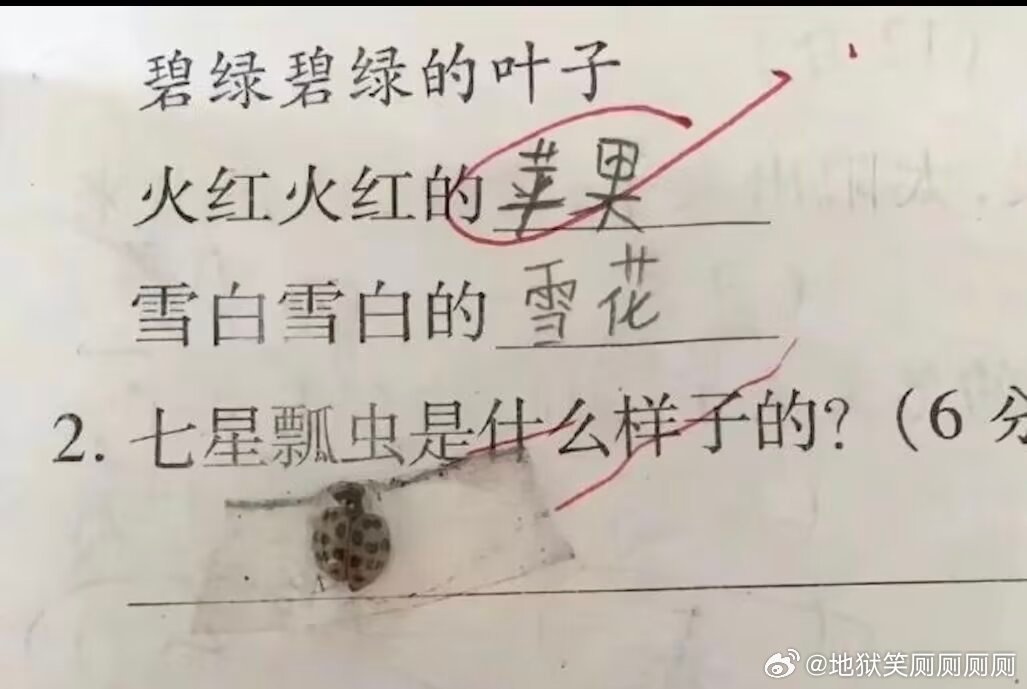 碧绿碧绿的叶子
火红火红的苹果
雪白雪白的雪花
2. 七星瓢虫是什么样子的?(6分
@地狱笑厕厕厕厕